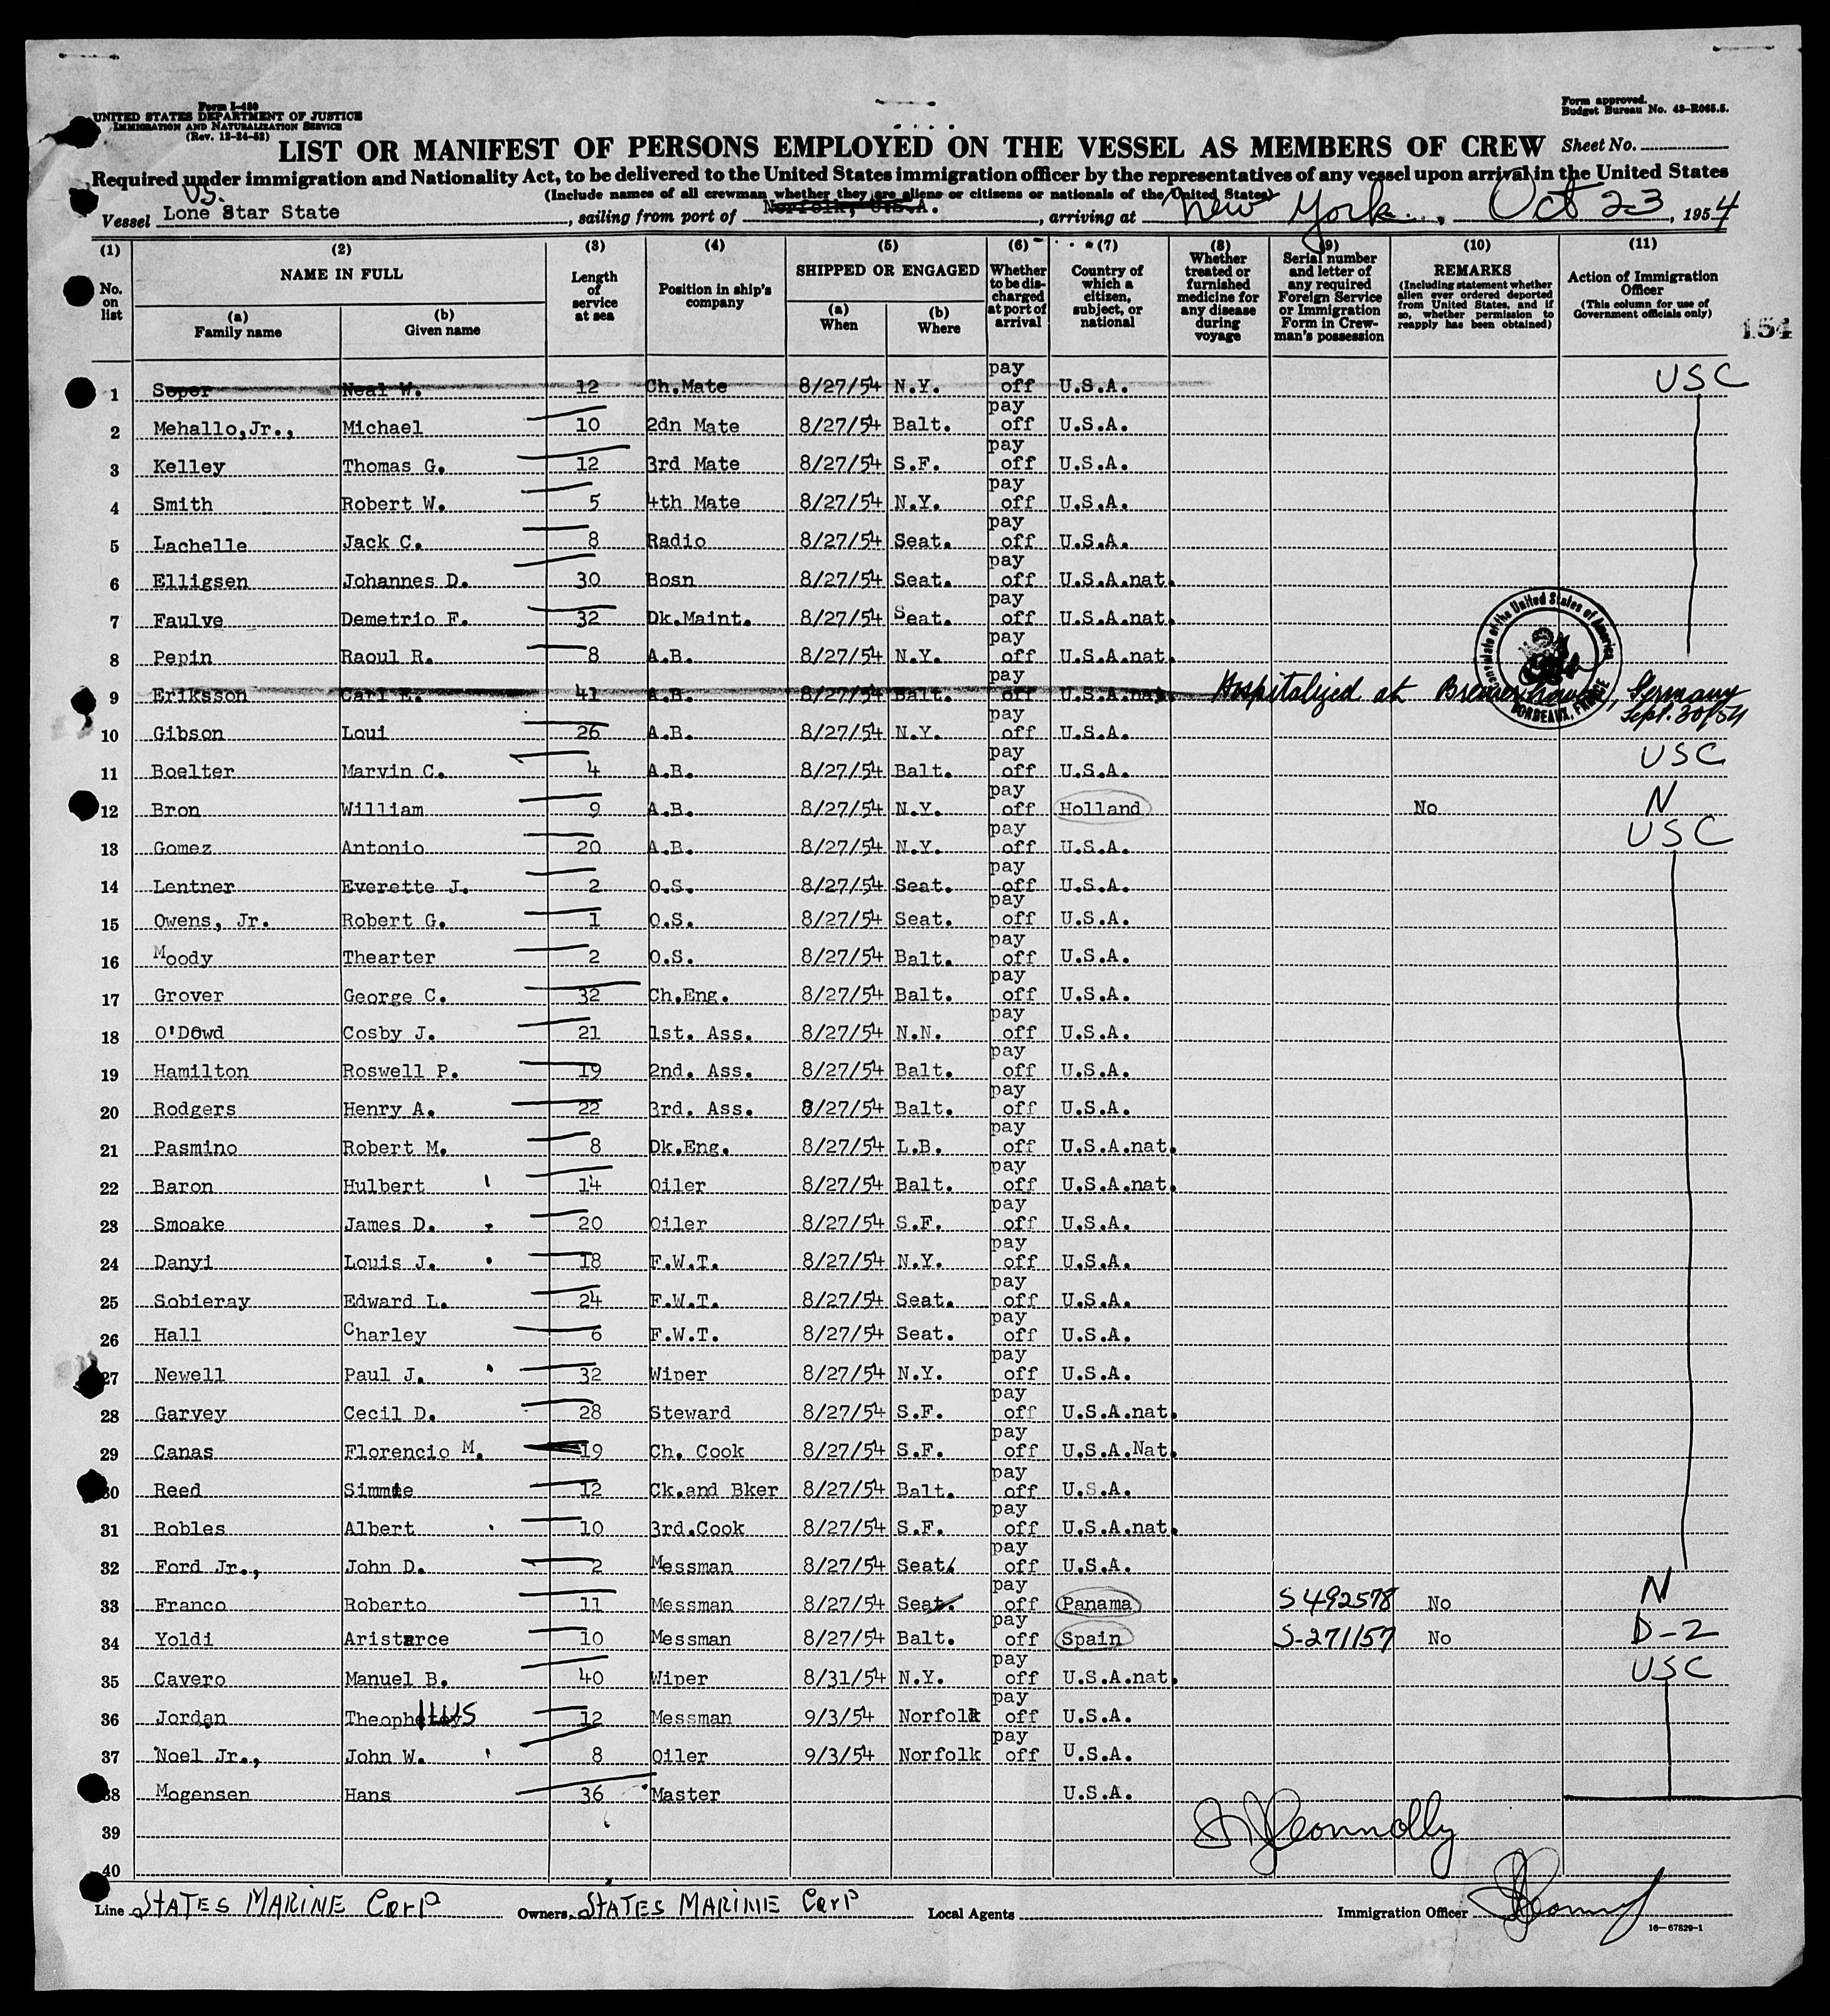 Form I-480
UNITED STATES DEPARTMENT OF JUSTICE
IMMIGRATION AND NATURALIZATION SERVICE
(Rev. 12-24-52)
Form approved.
Budget Bureau No. 43-R065.5.
LIST OR MANIFEST OF PERSONS EMPLOYED ON THE VESSEL AS MEMBERS OF CREW Sheet No.
Required under immigration and Nationality Act, to be delivered to the United States immigration officer by the representatives of any vessel upon arrival in the United States
(Include names of all crewman whether they are aliens or citizens or nationals of the United States)
Vessel US. Lone Star State, sailing from port of Norfolk, U.S.A., arriving at New York, Oct 23, 1954
(1) No. on list
(2) NAME IN FULL (a) Family name (b) Given name
(3) Length of service at sea
(4) Position in ship's company
(5) SHIPPED OR ENGAGED (a) When (b) Where
(6) Whether to be discharged at port of arrival
(7) Country of which a citizen, subject, or national
(8) Whether treated or furnished medicine for any disease during voyage
(9) Serial number and letter of any required Foreign Service or Immigration Form in Crewman's possession
(10) REMARKS (Including statement whether alien ever ordered deported from United States, and if so, whether permission to reapply has been obtained)
(11) Action of Immigration Officer (This column for use of Government officials only)
154
1 Soper Neal W. 12 Ch.Mate 8/27/54 N.Y. pay off U.S.A. USC
2 Mehallo,Jr., Michael 10 2dn Mate 8/27/54 Balt. pay off U.S.A.
3 Kelley Thomas G. 12 3rd Mate 8/27/54 S.F. pay off U.S.A.
4 Smith Robert W. 5 4th Mate 8/27/54 N.Y. pay off U.S.A.
5 Lachelle Jack C. 8 Radio 8/27/54 Seat. pay off U.S.A.
6 Elligsen Johannes D. 30 Bosn 8/27/54 Seat. pay off U.S.A.nat.
7 Faulve Demetrio F. 32 Dk.Maint. 8/27/54 Seat. pay off U.S.A.nat.
8 Pepin Raoul R. 8 A.B. 8/27/54 N.Y. pay off U.S.A.nat.
Consulate of the United States of America BORDEAUX, FRANCE
9 Eriksson Carl E. 41 A.B. 8/27/54 Balt. pay off U.S.A.nat. Hospitalized at Bremerhaven, Germany Sept. 30/54
10 Gibson Loui 26 A.B. 8/27/54 N.Y. pay off U.S.A.
11 Boelter Marvin C. 4 A.B. 8/27/54 Balt. pay off U.S.A. USC
12 Bron William 9 A.B. 8/27/54 N.Y. pay off Holland No N
13 Gomez Antonio 20 A.B. 8/27/54 N.Y. pay off U.S.A. USC
14 Lentner Everette J. 2 O.S. 8/27/54 Seat. pay off U.S.A.
15 Owens, Jr. Robert G. 1 O.S. 8/27/54 Seat. pay off U.S.A.
16 Moody Thearter 2 O.S. 8/27/54 Balt. pay off U.S.A.
17 Grover George C. 32 Ch.Eng. 8/27/54 Balt. pay off U.S.A.
18 O'Dowd Cosby J. 21 1st. Ass. 8/27/54 N.N. pay off U.S.A.
19 Hamilton Roswell P. 19 2nd. Ass. 8/27/54 Balt. pay off U.S.A.
20 Rodgers Henry A. 22 3rd. Ass. 8/27/54 Balt. pay off U.S.A.
21 Pasmino Robert M. 8 Dk.Eng. 8/27/54 L.B. pay off U.S.A.nat.
22 Baron Hulbert 14 Oiler 8/27/54 Balt. pay off U.S.A.nat.
23 Smoake James D. 20 Oiler 8/27/54 S.F. pay off U.S.A.
24 Danyi Louis J. 18 F.W.T. 8/27/54 N.Y. pay off U.S.A.
25 Sobieray Edward L. 24 F.W.T. 8/27/54 Seat. pay off U.S.A.
26 Hall Charley 6 F.W.T. 8/27/54 Seat. pay off U.S.A.
27 Newell Paul J. 32 Wiper 8/27/54 N.Y. pay off U.S.A.
28 Garvey Cecil D. 28 Steward 8/27/54 S.F. pay off U.S.A.nat.
29 Canas Florencio M. 19 Ch. Cook 8/27/54 S.F. pay off U.S.A.Nat.
30 Reed Simmie 12 Ck.and Bker 8/27/54 Balt. pay off U.S.A.
31 Robles Albert 10 3rd.Cook 8/27/54 S.F. pay off U.S.A.nat.
32 Ford Jr., John D. 2 Messman 8/27/54 Seat. pay off U.S.A.
33 Franco Roberto 11 Messman 8/27/54 Seat. pay off Panama S492578 No N
34 Yoldi Aristarce 10 Messman 8/27/54 Balt. pay off Spain S-271157 No D-2
35 Cavero Manuel B. 40 Wiper 8/31/54 N.Y. pay off U.S.A.nat. USC
36 Jordan Theophilus 12 Messman 9/3/54 Norfolk pay off U.S.A.
37 Noel Jr., John W. 8 Oiler 9/3/54 Norfolk pay off U.S.A.
38 Mogensen Hans 36 Master U.S.A.
39 Connolly
40
Line STATES MARINE CORP Owners STATES MARINE CORP Local Agents Immigration Officer
16-67829-1